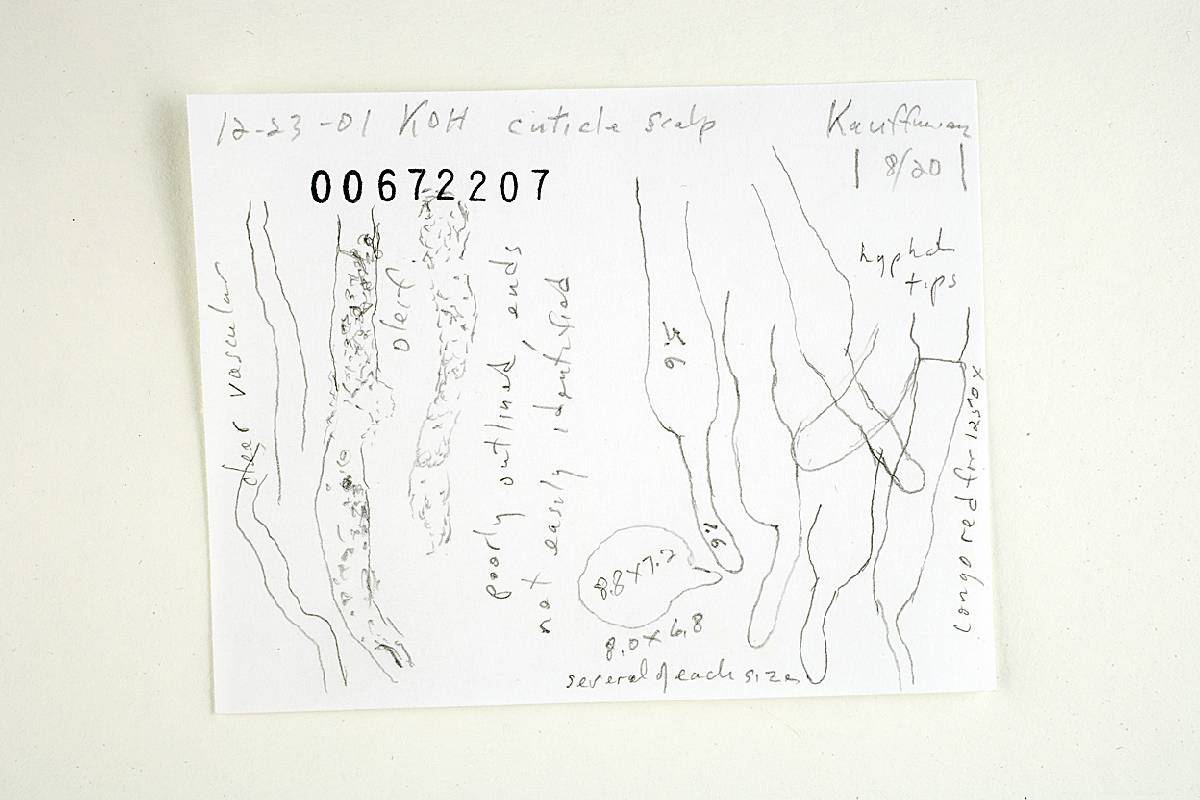 12-23-01 KOH cuticle scalp
Kauffman
8/20
00672207
hyphal
tips
vascular
oleif
poorly outlined ends
not easily identified
5.6
1.6
8.8 x 7.2
8.0 x 6.8
several of each size
Congo red for 1250x